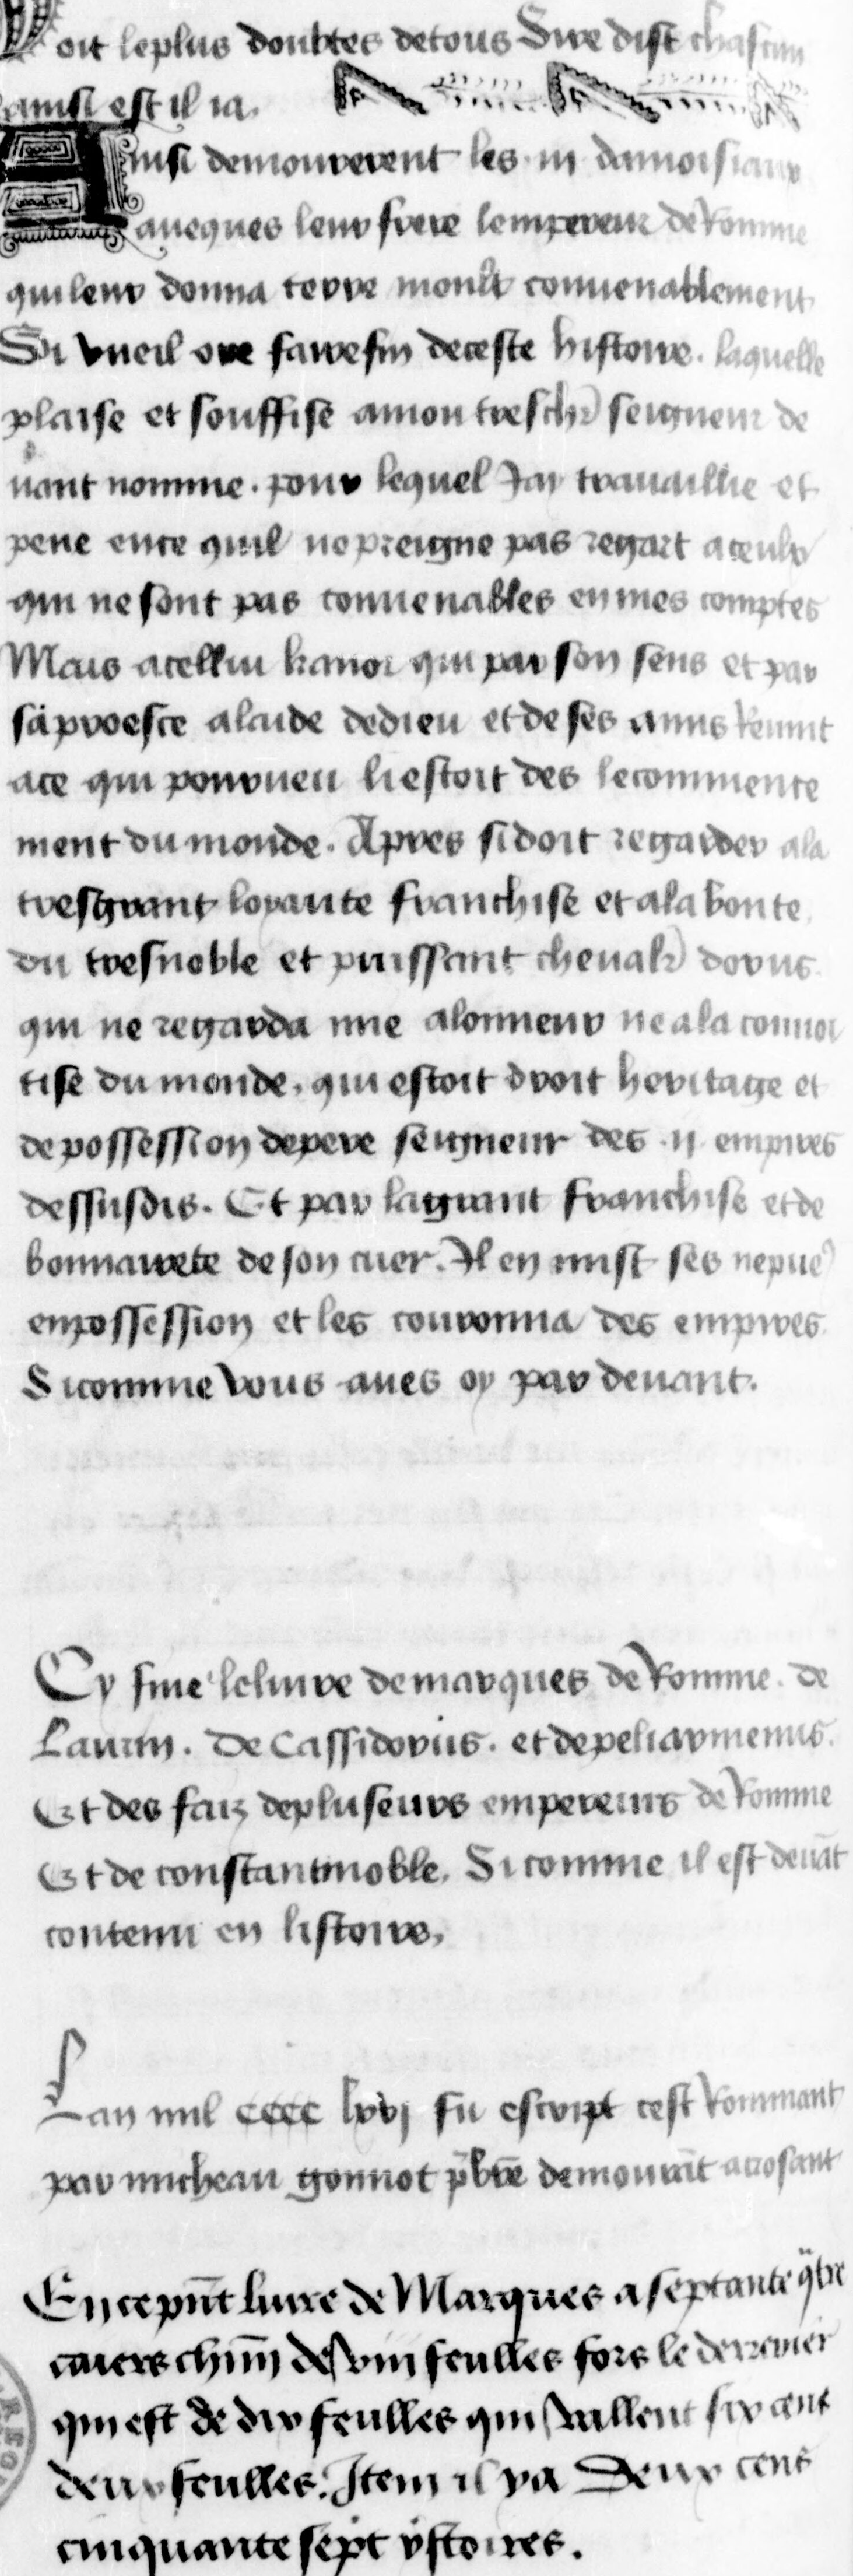 Doit leplus doubtes detous Sire dist chascun
ainsi est il ia.
Ainsi demourerent les .iii. damoisiaux
auecques leur frere lempereur de Romme
qui leur donna terre moult conuenablement
Si vueil ore faire fin deceste histoire. laquelle
plaise et souffise amon treschr̄ seigneur de
uant nomme. pour lequel Jay trauaillie et
pene ence quil nepreigne pas regart aceulx
qui ne sont pas conuenables enmes comptes
Mais acellui kanor qui par son sens et par
saproesce alaide dedieu et de ses amis Reuint
ace qui pourueu liestoit des lecommence
ment du monde. Apres sidoit regarder ala
tresgrant loyaute franchise et ala bonte
du tresnoble et puissant cheualr̄ dorus
qui ne regarda mie alonneur ne ala conuoi
tise du monde. qui estoit droit heritage et
de possession depere seigneur des .ii. empires
dessusdis. Et par lagrant franchise et de
bonnairete de son cuer. Il en mist ses nepue
enpossession et les couronna des empires.
Si comme vous aues oy par deuant.
Cy fine leliure demarques de Romme. de
Laurin. De Cassidorus. et depeliarmenus.
Et des faiz depluseurs empereurs de Romme
Et de constantinoble. Si comme il est deuāt
contenu en listoire.
Lan mil cccc lxvj fu escript cest Rommant
par micheau gonnot p̄bre demourāt acrosant
En ce pn̄t liure de Marques a septante q̄tre
caiers chūn de viii feulles fors le derrenier
qui est de dix feulles qui vallent six cent
deux feulles. Item il ya Deux cens
cinquante sept ystoires.